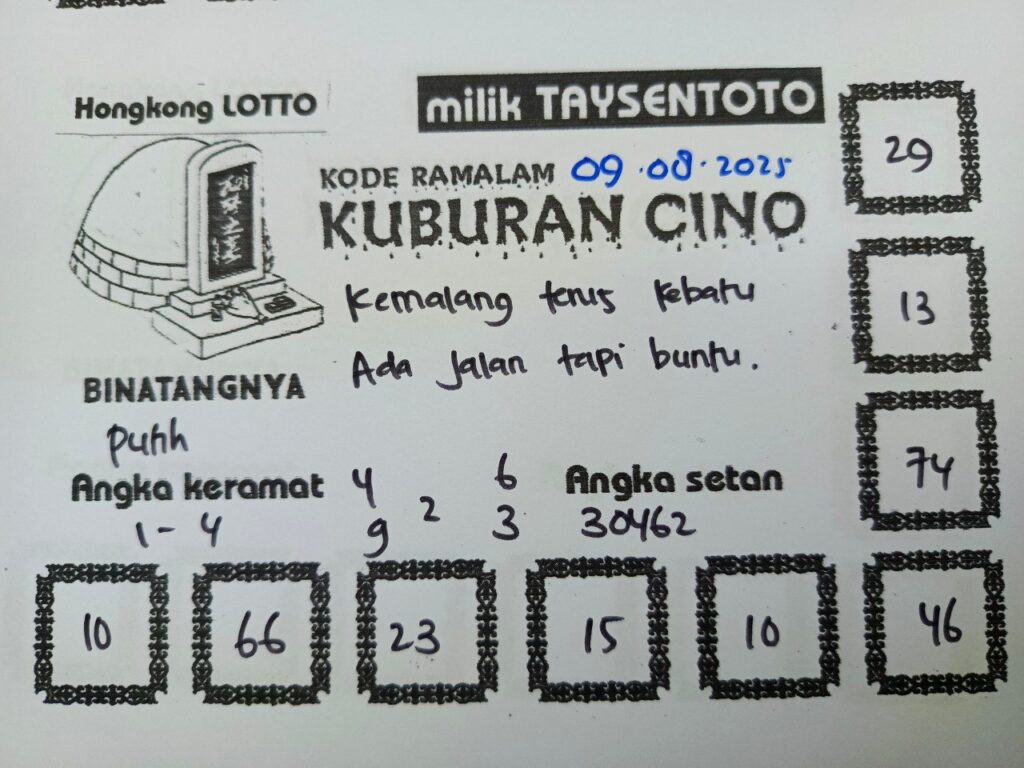 Hongkong LOTTO
milik TAYSENTOTO
KODE RAMALAM 09.08.2025
KUBURAN CINO
Kemalang terus kebatu
Ada Jalan tapi buntu.
BINATANGNYA
putih
Angka keramat
1-4
4 6
2
9 3
Angka setan
30462
29
13
74
10 66 23 15 10 46